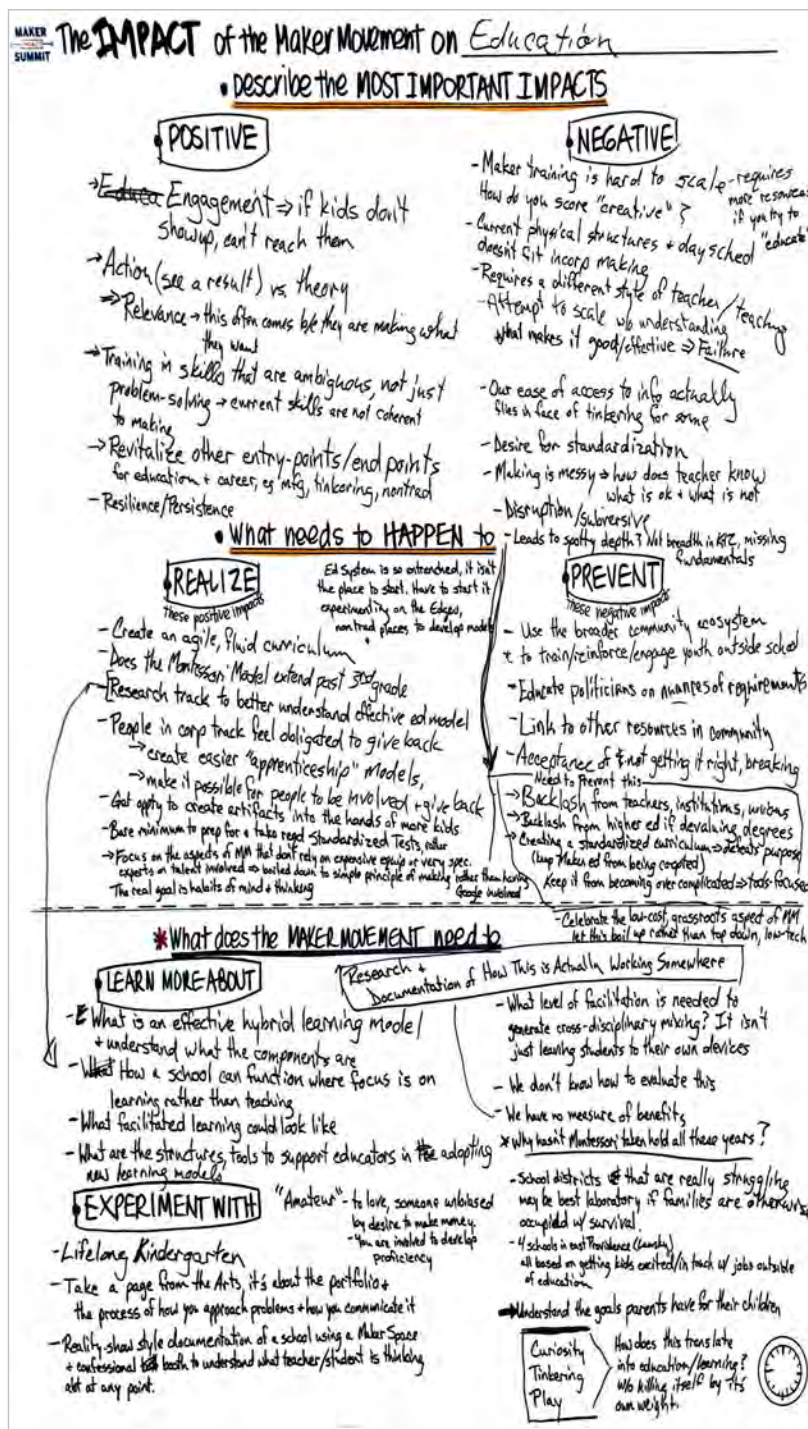 MAKER
SUMMIT
The IMPACT of the Maker Movement on Education
• Describe the MOST IMPORTANT IMPACTS
POSITIVE
→ Educa Engagement ⇒ if kids don't
show up, can't reach them
→ Action (see a result) vs. theory
⇒ Relevance → this often comes b/c they are making what
they want
→ Training in skills that are ambiguous, not just
problem-solving → current skills are not coherent
to making
→ Revitalize other entry-points/end points
for education + career, eg mfg, tinkering, nontrad
- Resilience/Persistence
NEGATIVE!
- Maker training is hard to scale - requires
more resources
if you try to
"educate"
How do you score "creative"?
- Current physical structures + day sched
doesn't fit incorp making
- Requires a different style of teacher/teaching
- Attempt to scale w/o understanding
what makes it good/effective ⇒ Failure
- Our ease of access to info actually
flies in face of tinkering for some
- Desire for standardization
- Making is messy → how does teacher know
what is ok + what is not
- Disruption/subversive
- Leads to spotty depth? Not breadth in K12, missing
fundamentals
• What needs to HAPPEN to
REALIZE
these positive impacts
Ed System is so entrenched, it isn't
the place to start. Have to start it
experimenting on the Edges,
nontrad places to develop models
- Create an agile, fluid curriculum
- Does the Montessori Model extend past 3rd grade
- Research track to better understand effective ed model
- People in corp track feel obligated to give back
→ create easier "apprenticeship" models,
→ make it possible for people to be involved + give back
- Get oppty to create artifacts into the hands of more kids
- Bare minimum to prep for + take reqd Standardized Tests,
→ Focus on the aspects of MM that don't rely on expensive equip or very spec.
experts or talent involved ⇒ boiled down to simple principle of making rather than having
Google involved
The real goal is habits of mind + thinking
PREVENT
these negative impacts
- Use the broader community ecosystem
to train/reinforce/engage youth outside school
- Educate politicians on nuances of requirements
- Link to other resources in community
- Acceptance of not getting it right, breaking
Need to Prevent this
→ Backlash from teachers, institutions, unions
→ Backlash from higher ed if devaluing degrees
→ Creating a standardized curriculum ⇒ defeats purpose
(keep Maker ed from being coopted)
Keep it from becoming over complicated ⇒ tools-focused
- Celebrate the low-cost, grassroots aspect of MM
let this boil up rather than top down, low-tech
* What does the MAKER MOVEMENT need to
LEARN MORE ABOUT
Research +
Documentation of How This is Actually Working Somewhere
- What is an effective hybrid learning model
+ understand what the components are
- What How a school can function where focus is on
learning rather than teaching
- What facilitated learning could look like
- What are the structures, tools to support educators in the adopting
new learning models
- What level of facilitation is needed to
generate cross-disciplinary mixing? It isn't
just leaving students to their own devices
- We don't know how to evaluate this
- We have no measure of benefits
* Why hasn't Montessori taken hold all these years?
- School districts that are really struggling
may be best laboratory if families are otherwise
occupied w/ survival.
- 4 schools in east Providence
all based on getting kids excited/in touch w/ jobs outside
of education
→ Understand the goals parents have for their children
EXPERIMENT WITH
"Amateur" - to love, someone unbiased
by desire to make money.
- You are involved to develop
proficiency
- Lifelong Kindergarten
- Take a page from the Arts, it's about the portfolio +
the process of how you approach problems + how you communicate it
- Reality-show style documentation of a school using a Maker Space
+ confessional booth to understand what teacher/student is thinking
abt at any point.
Curiosity
Tinkering
Play
How does this translate
into education/learning?
w/o killing itself by it's
own weight.